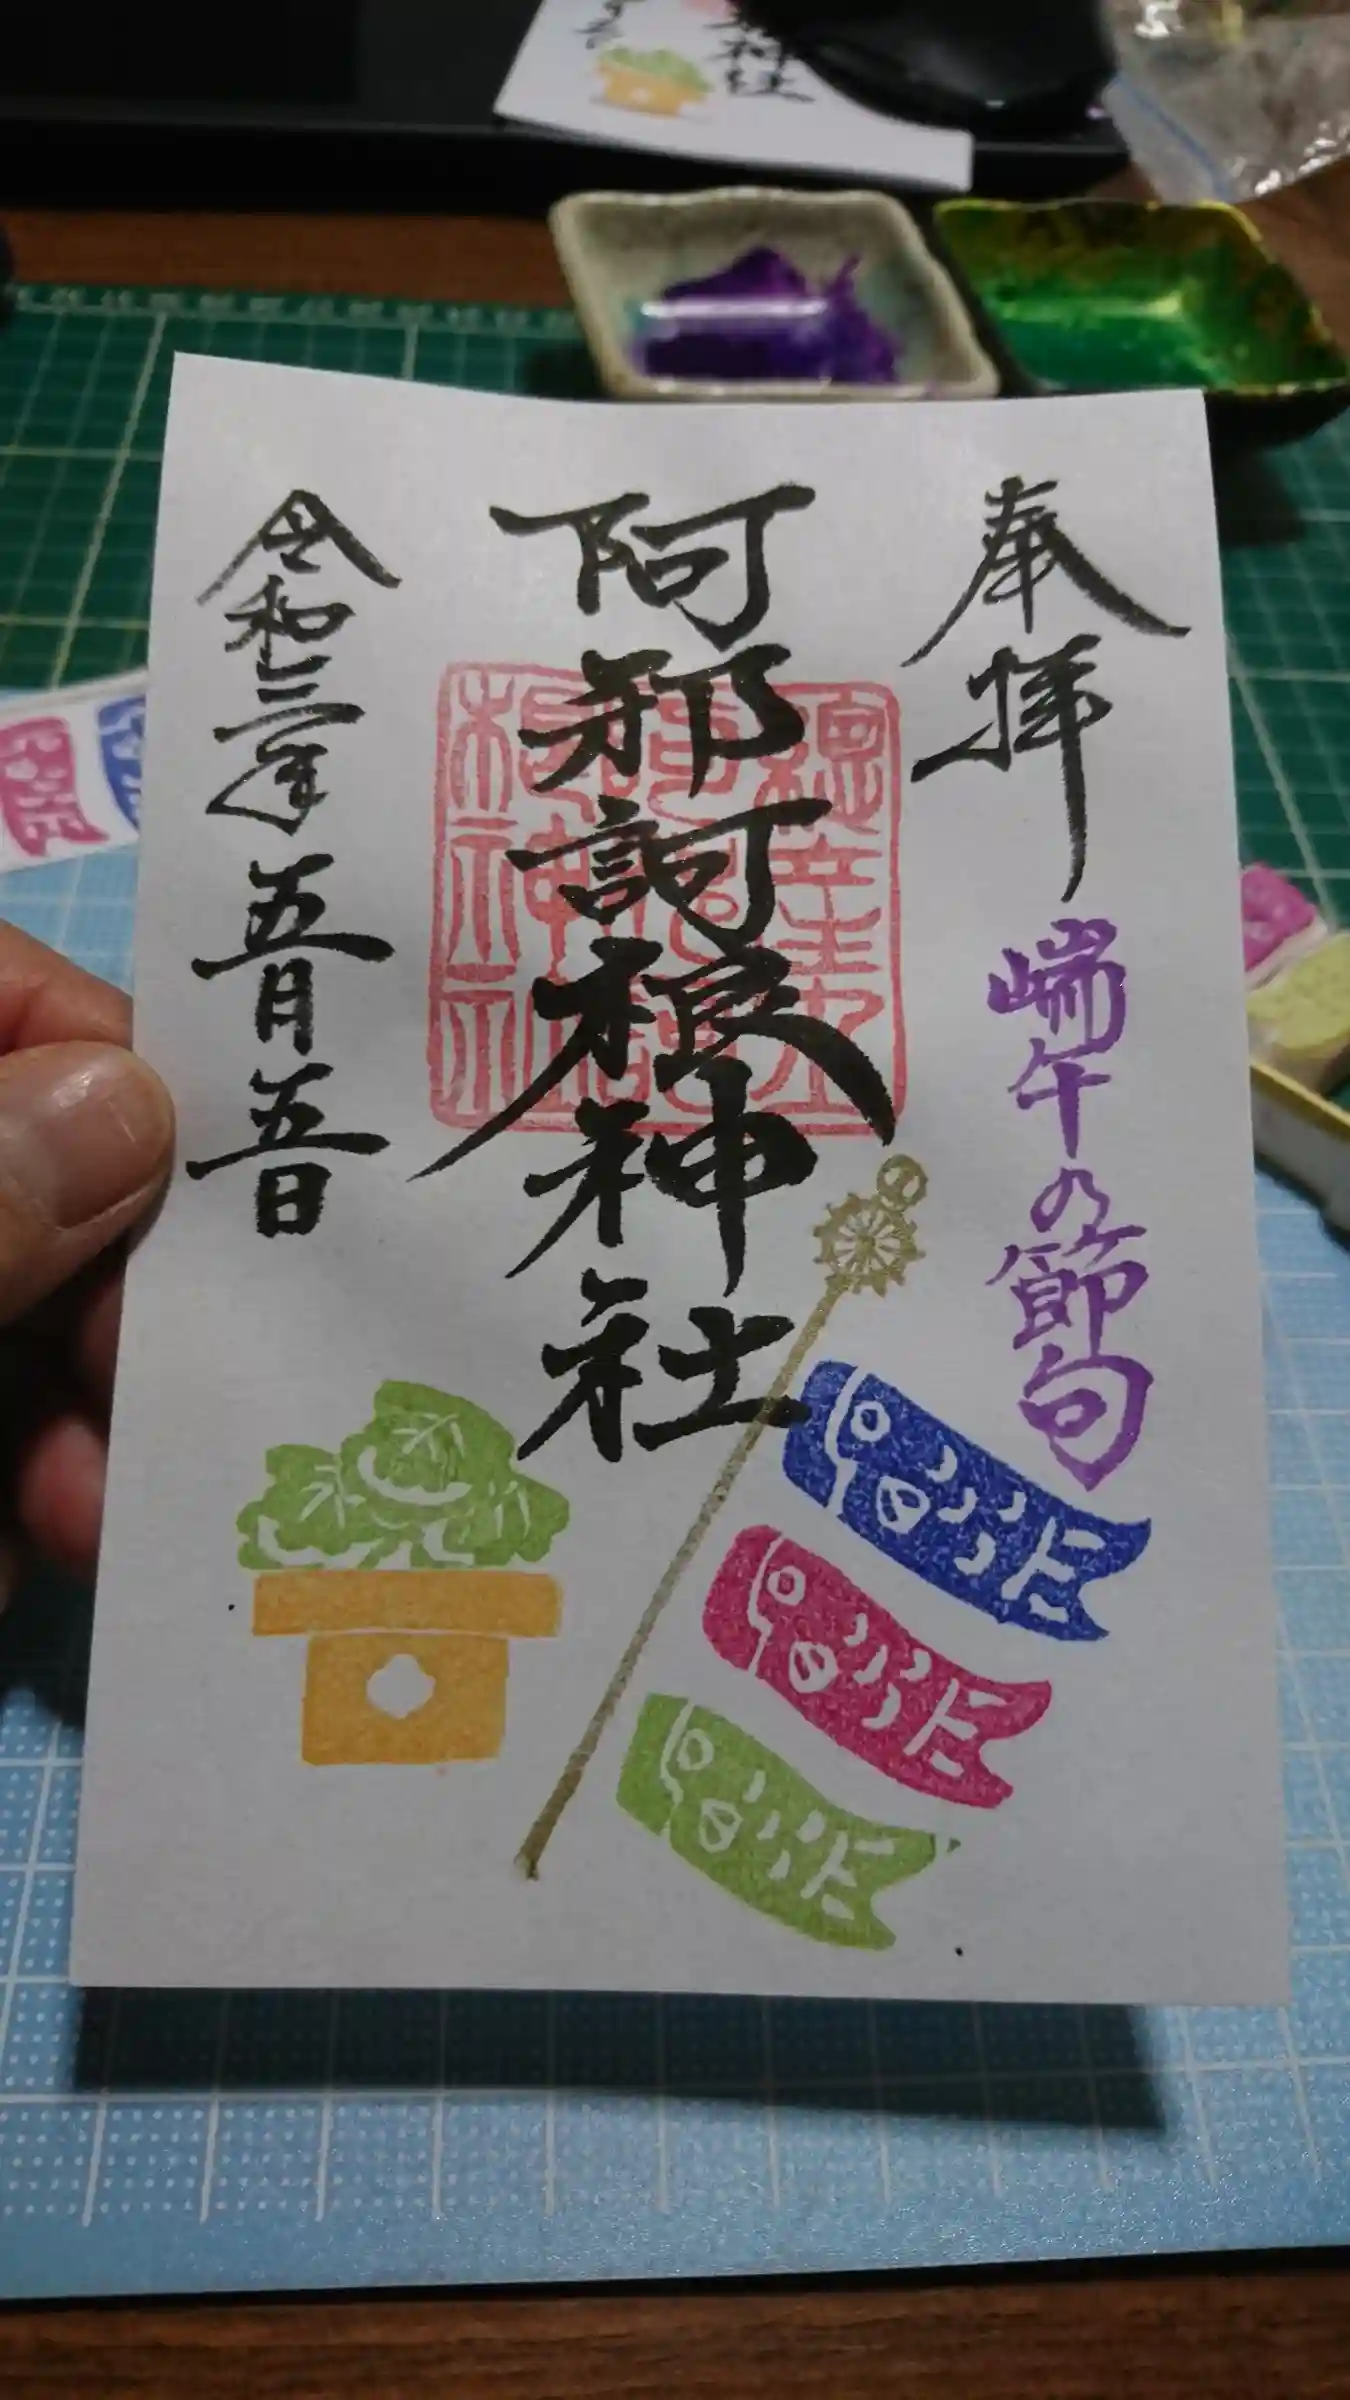 奉拝
端午の節句
阿邪訶根神社
令和三年五月五日
神社